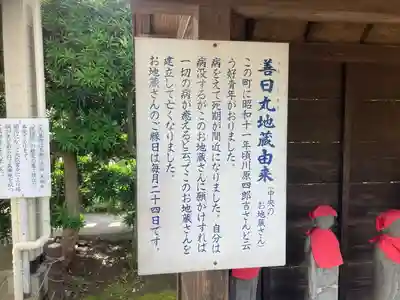 善日丸地蔵由来
(中央の
お地蔵さん)
この町に昭和十一年頃川原四郎吉さんと云
う好青年がおりました。
病をえて死期が間近になりました。自分は
病没するがこのお地蔵さんに願かけすれば
一切の病が癒えると云ってこのお地蔵さんを
建立して亡くなりました。
お地蔵さんのご縁日は毎月二十四日です。